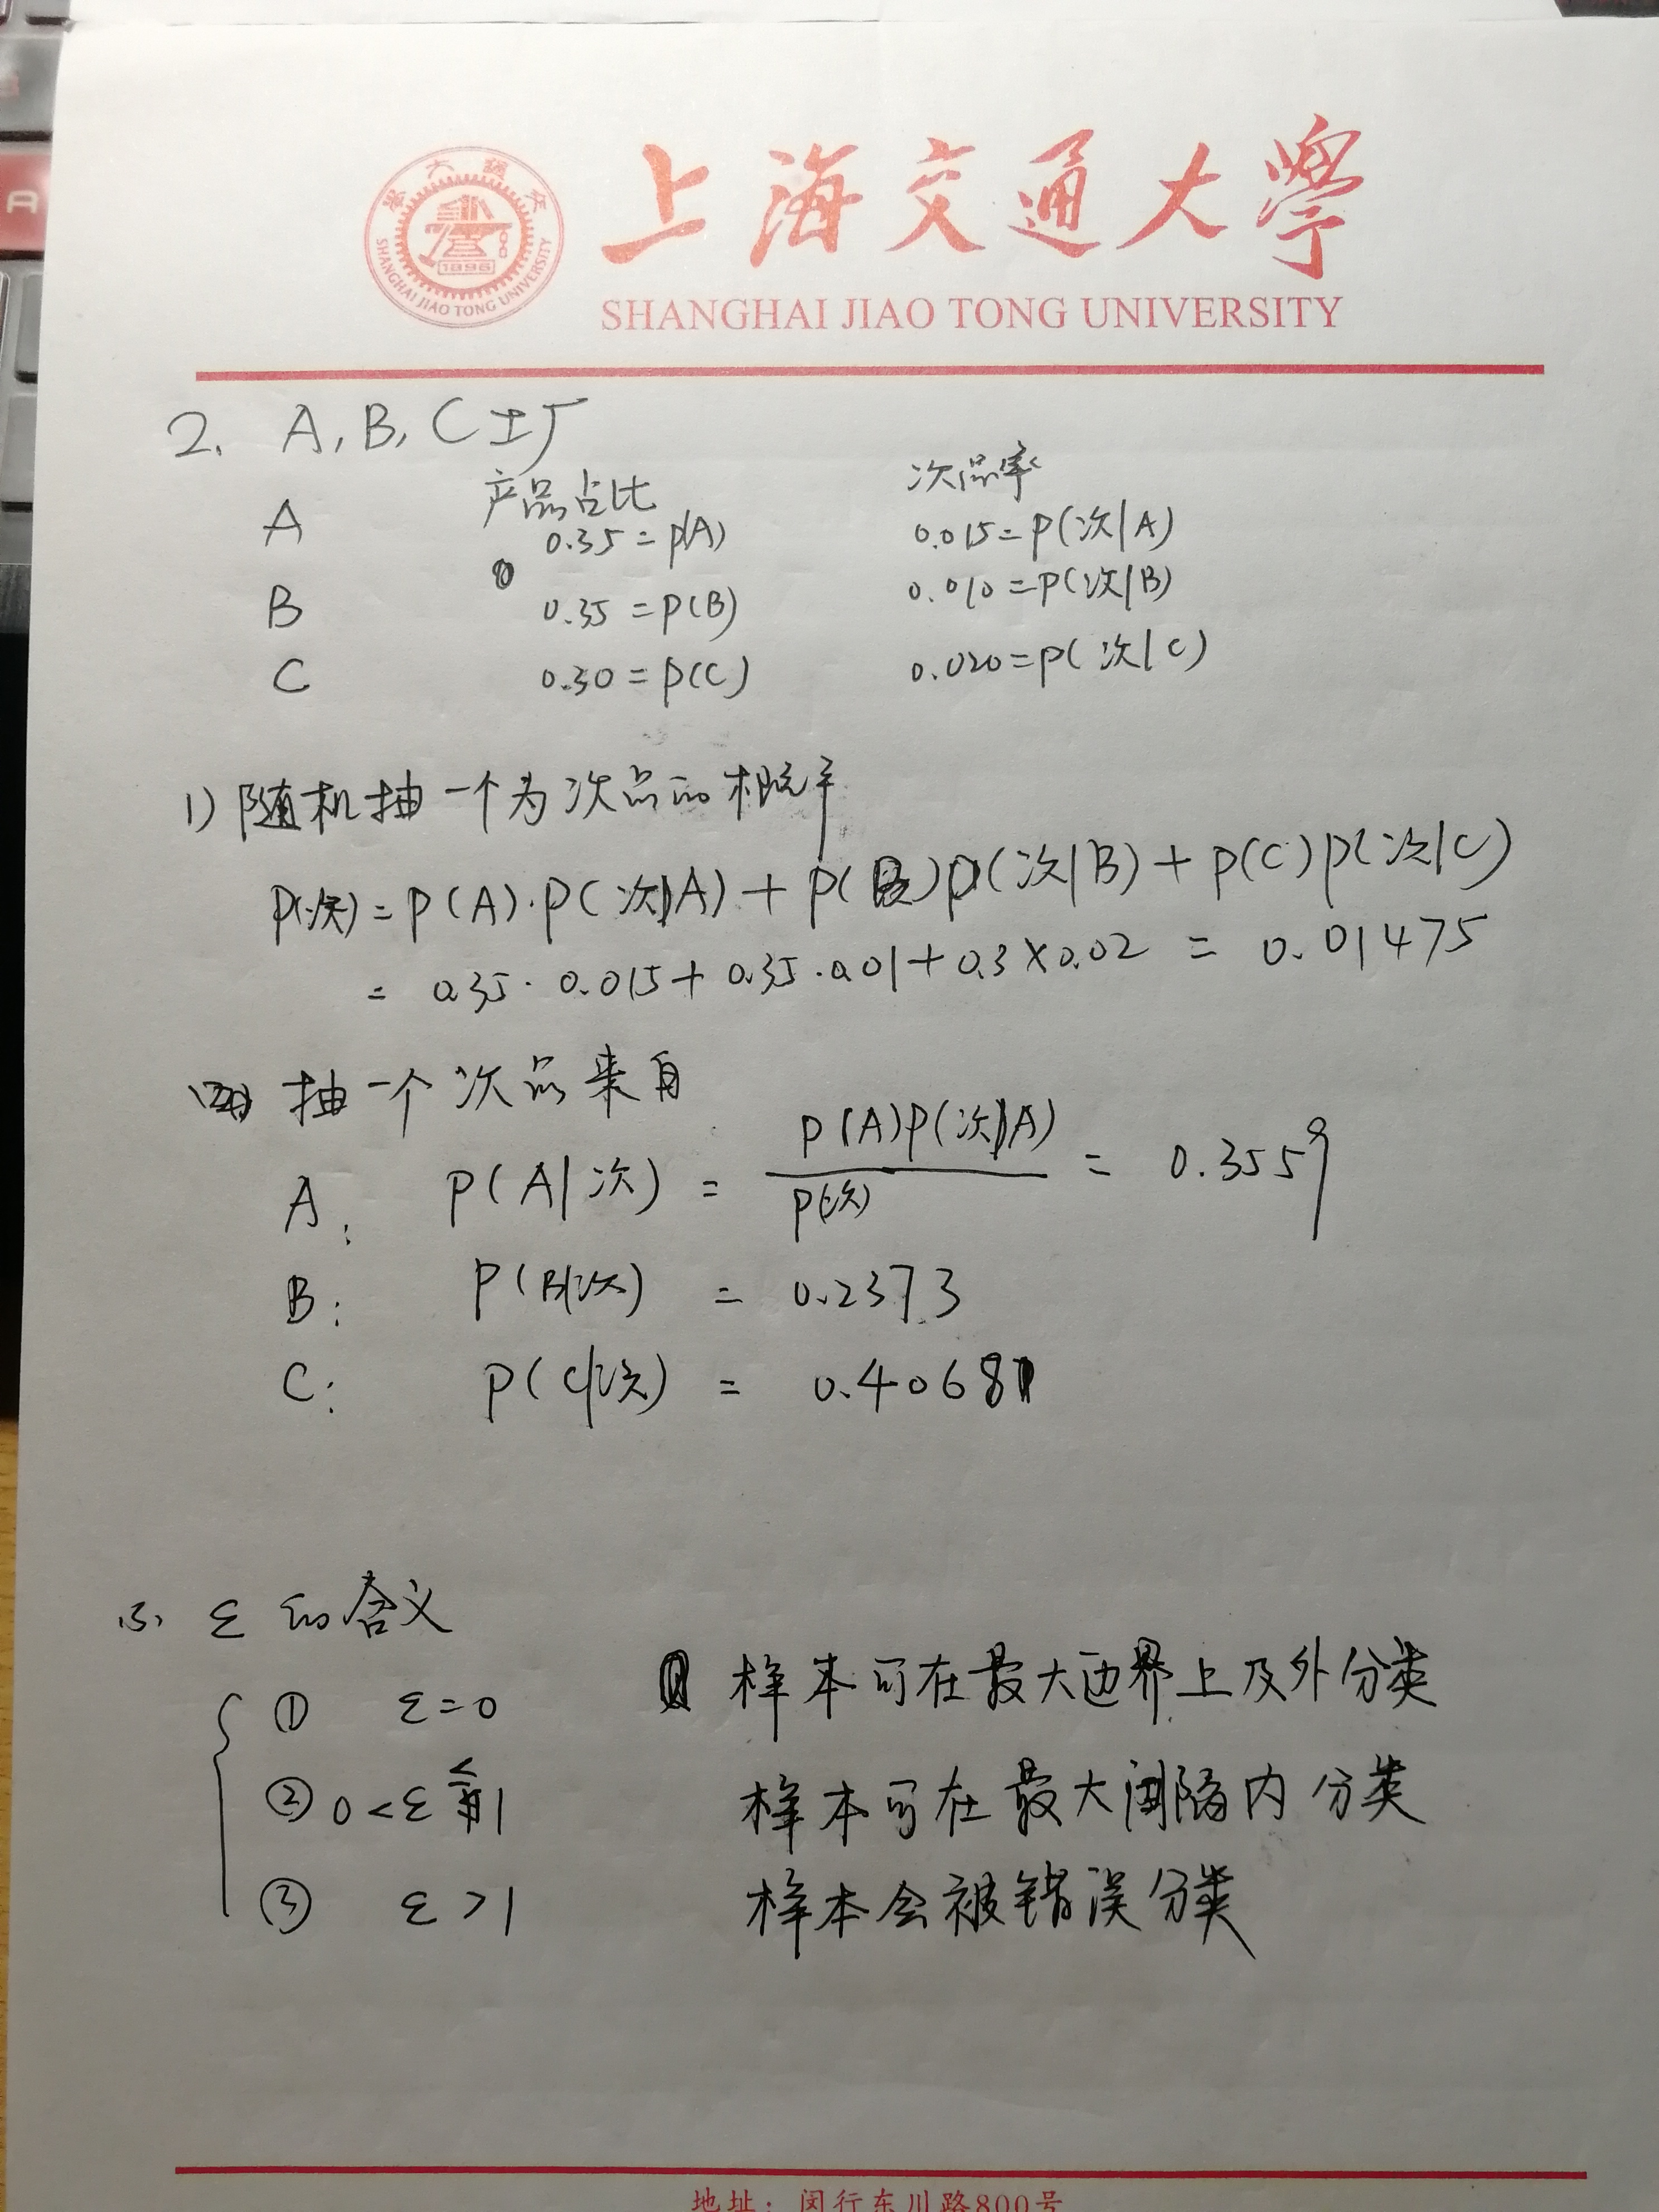 上海交通大學
SHANGHAI JIAO TONG UNIVERSITY
1896
SHANGHAI JIAO TONG UNIVERSITY
2. A, B, C 工厂
产品占比 次品率
A 0.35 = p(A) 0.015 = p(次|A)
B 0.35 = p(B) 0.010 = p(次|B)
C 0.30 = p(C) 0.020 = p(次|C)
1) 随机抽一个为次品的概率
p(次) = p(A)·p(次|A) + p(B)p(次|B) + p(C)p(次|C)
= 0.35·0.015 + 0.35·0.01 + 0.3×0.02 = 0.01475
抽一个次品来自
A: p(A|次) = p(A)p(次|A) / p(次) = 0.3559
B: p(B|次) = 0.2373
C: p(C|次) = 0.4068
3. ε 的含义
① ε=0 样本可在最大边界上及外分类
② 0<ε≤1 样本可在最大间隔内分类
③ ε>1 样本会被错误分类
地址：闵行东川路800号